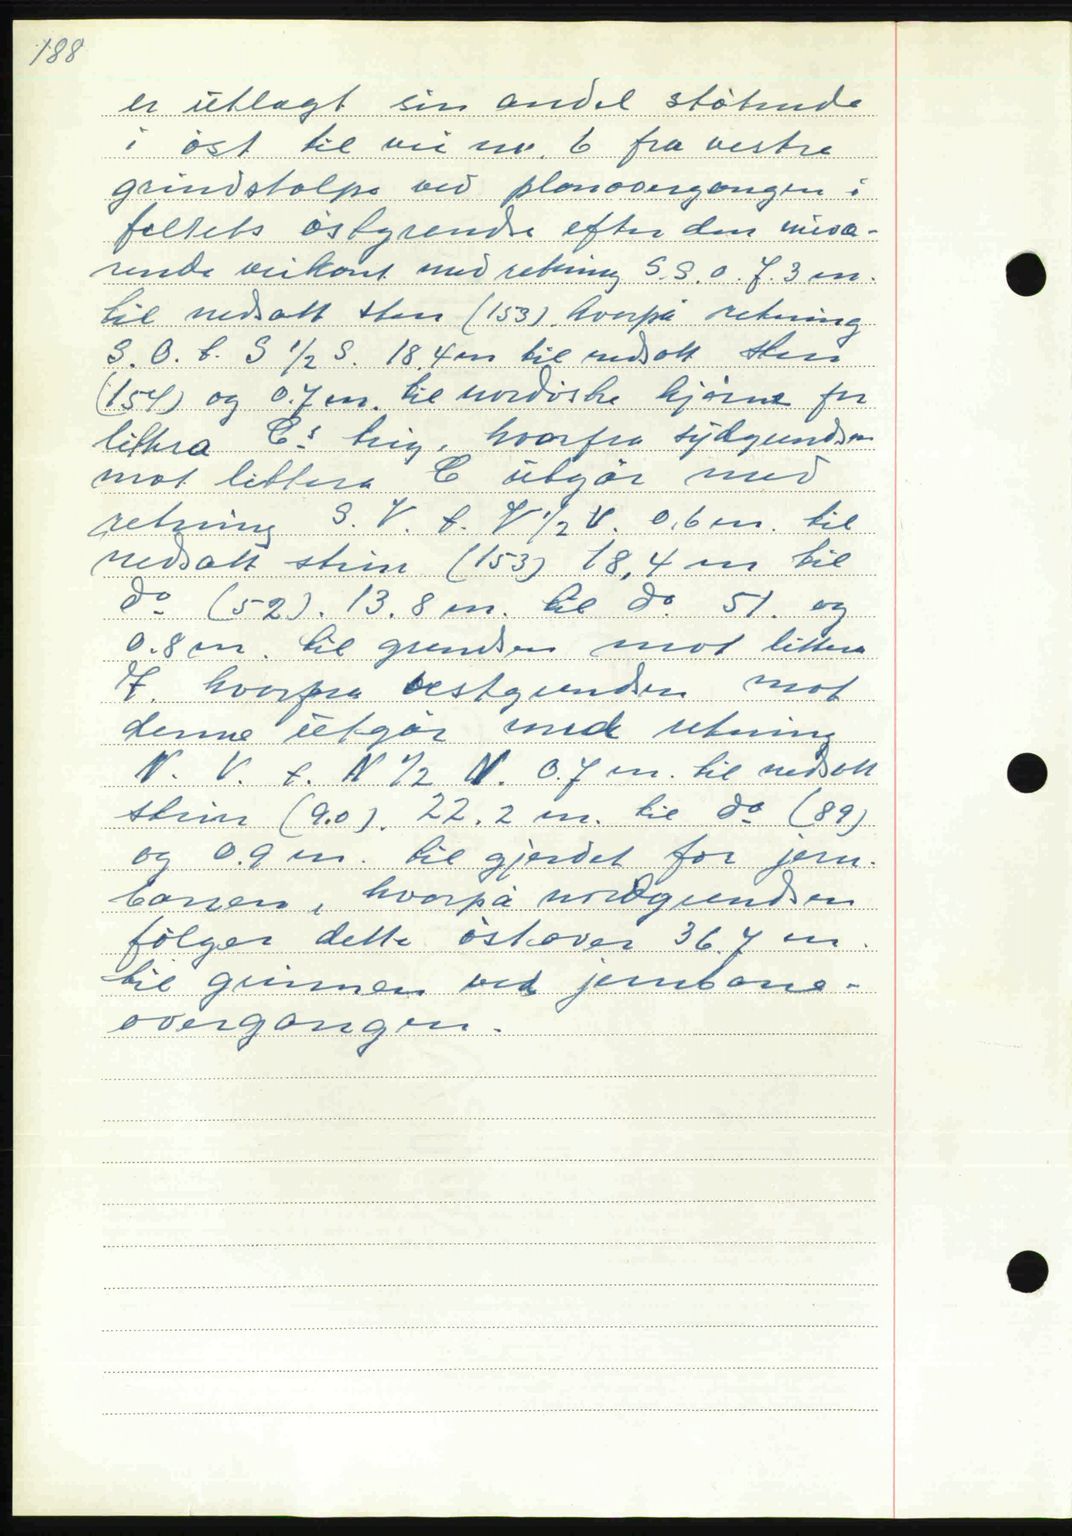 188
er utlagt sin andel støtende
i øst til vei nr. 6 fra vestre
grindstolpe ved planovergangen i
feltets østgrendse efter den nuvæ-
rende veikant med retning S.S.O. 7.3 m.
til nedsatt sten (153) hvorpå retning
S. O. t. S 1/2 S. 18,4 m til nedsatt sten
(154) og 0.7 m. til nordøstre hjørne for
littra C's teig, hvorfra sydgrendsen
mot littera C utgår med
retning S. V. t. V 1/2 V. 0,6 m. til
nedsatt sten (153) 18,4 m til
do (52). 13.8 m. til do 51. og
0.8 m. til grendsen mot littera
F. hvorfra vestgrendsen mot
denne utgår med retning
N. V. t. N 1/2 N. 0.7 m. til nedsatt
sten (90). 22.2 m. til do (89)
og 0.9 m. til gjerdet for jern-
banen, hvorpå nordgrendsen
følger dette østover 36.7 m.
til grinnen ved jernbane-
overgangen.